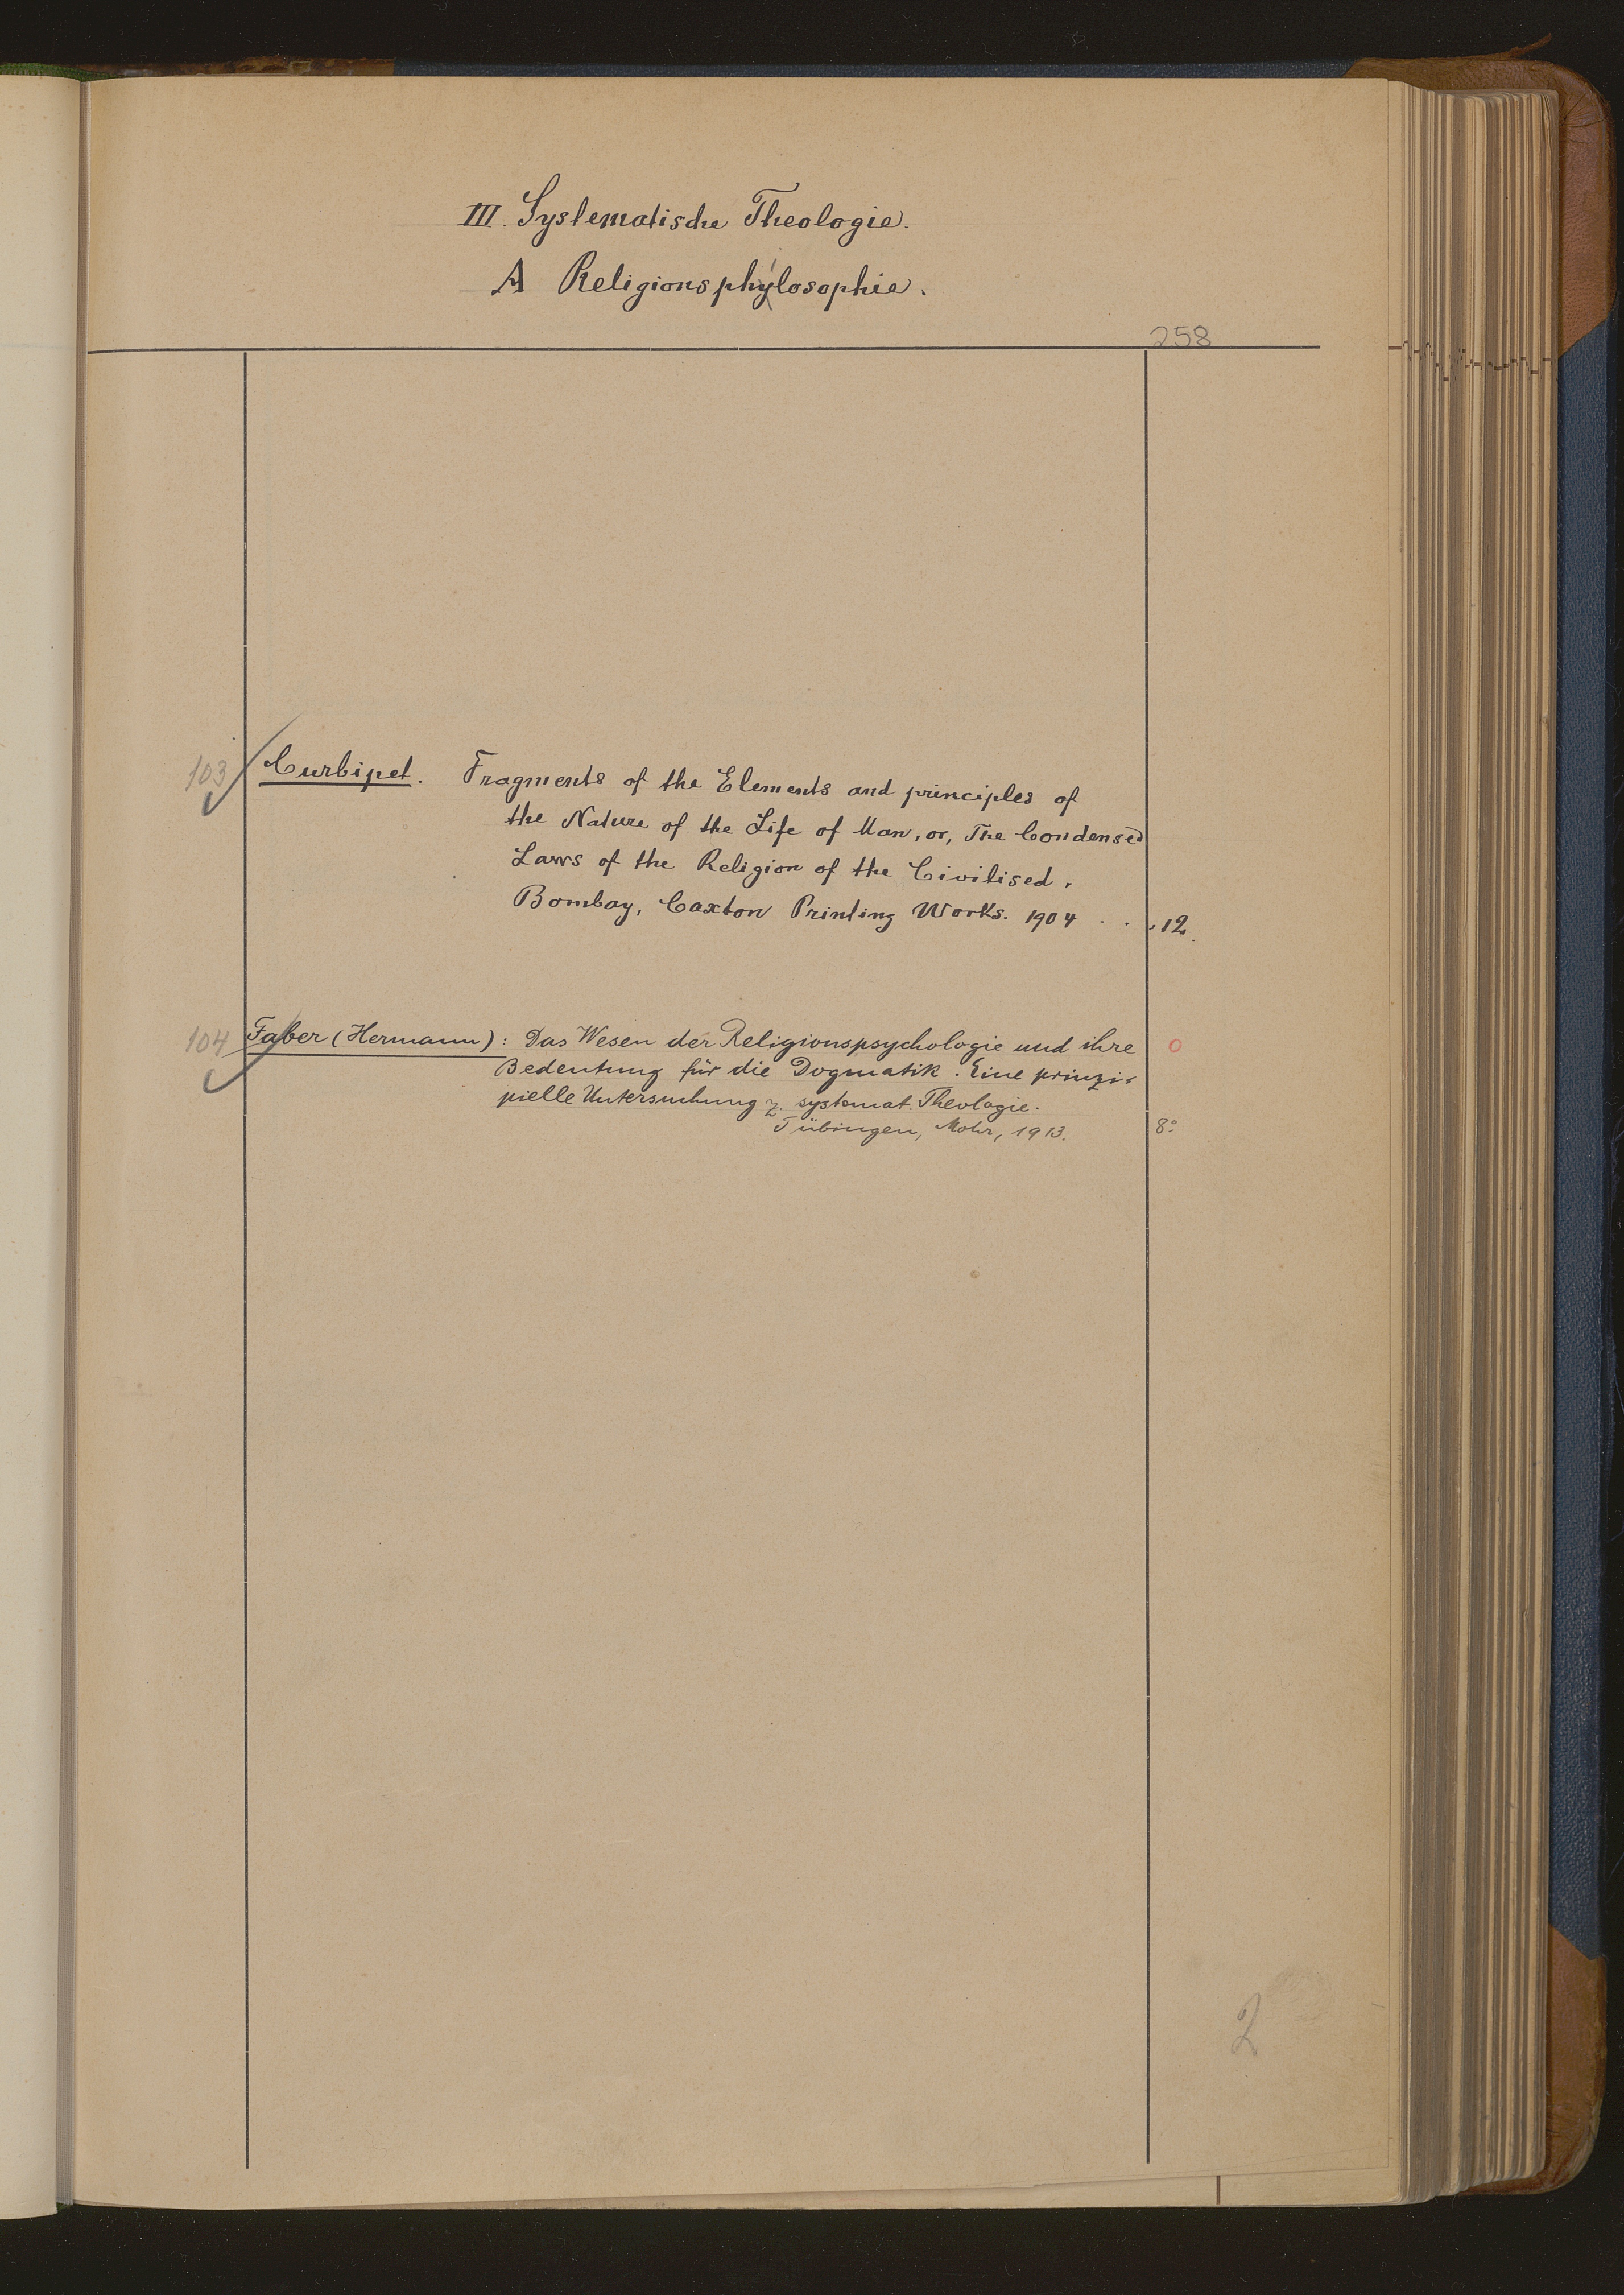 III. Systematische Theologie.
A Religionsphilosophie.
258
103 Curbipet. Fragments of the Elements and principles of
the Nature of the Life of Man, or, The Condensed
Laws of the Religion of the Civilised.
Bombay, Caxton Printing Works. 1904 . . . 12.
104 Faber (Hermann): Das Wesen der Religionspsychologie und ihre
Bedeutung für die Dogmatik. Eine prinzi-
pielle Untersuchung z. systemat. Theologie.
Tübingen, Mohr, 1913. 8°
2